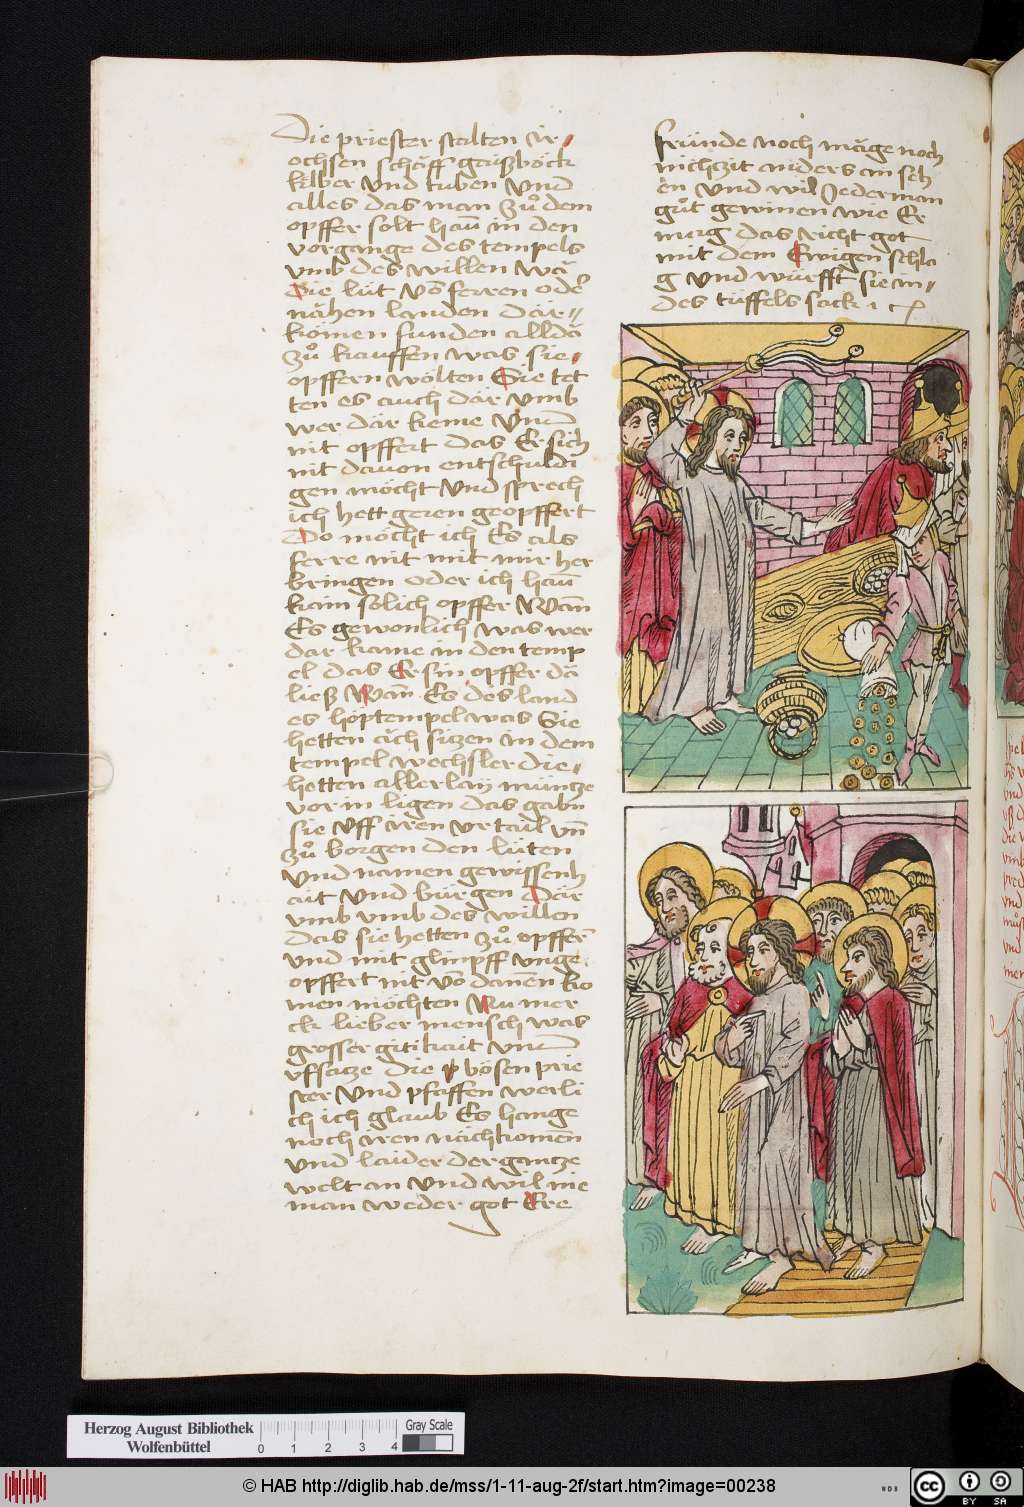 Die priester stalten ir
ochsen schäff gaißböck
kelber vnd tuben vnd
alles das man zů dem
opffer solt haū in den
vorgange des tempels
vmb des willen wā
Sie lüt vō ferren oder
nähen landen där
kömen funden alldā
zů kauffen was sie
opffern wölten Sie tet
ten es auch där vmb
wer där keme vnd
nit opffert das Er sich
nit davon entschuldi
gen möcht vnd sprech
ich hett geren geopffert
Do mocht ich Es als
ferre nit mit mir her
bringen oder ich haū
kain sölich opffer Wañ
Es gewonlich was wer
dar kame in den temp
el das Er sin opffer dā
ließ Wañ Es des land
es höptempel was Sie
hetten äch sitzen in dem
tempel wechsler die
hetten allerlay müntze
vor in ligen das gabn
sie vff iren vrtail vñ
zů borgen den lüten
vnd namen gewissenh
ait vnd bürgen Där
vmb vmb des willen
das sie hetten zů opffern
vnd mit glimpff vnge
opffert nit vō dannen ko
men möchten Nu mer
ck lieber mensch was
grosser gitikait vnd
vfsatze die bösen prie
ster vnd pfaffen werli
ch ich glaub Es hange
noch iren nächkomen
vnd laider der gantze
welt an vnd wil nie
man weder got Ere
fründe noch mäge noch
nichzit anders an seh
en vnd wil Jederman
gůt gewinen wie Er
mag das richt got
mit dem Ewigen schla
g vnd würfft sie in
des tüffels sack
Herzog August Bibliothek
Wolfenbüttel
0 1 2 3 4
Gray Scale
© HAB http://diglib.hab.de/mss/1-11-aug-2f/start.htm?image=00238
WDB
cc BY SA